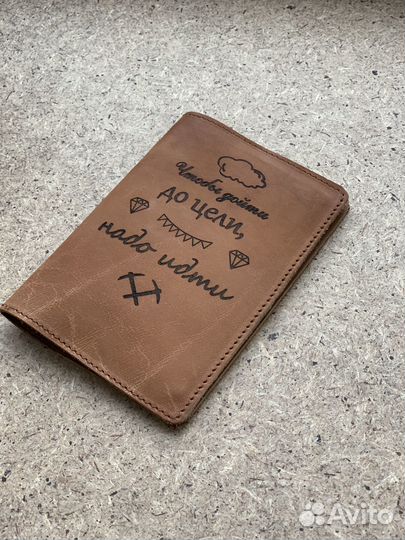 Чтобы дойти
до цели,
надо идти
Avito